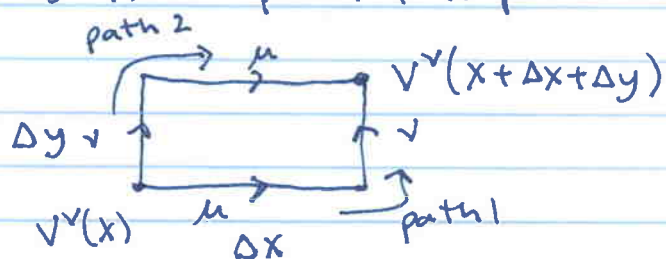 path 2
μ
V^ν(x+Δx+Δy)
Δy ν
ν
V^ν(x)
μ
path 1
Δx